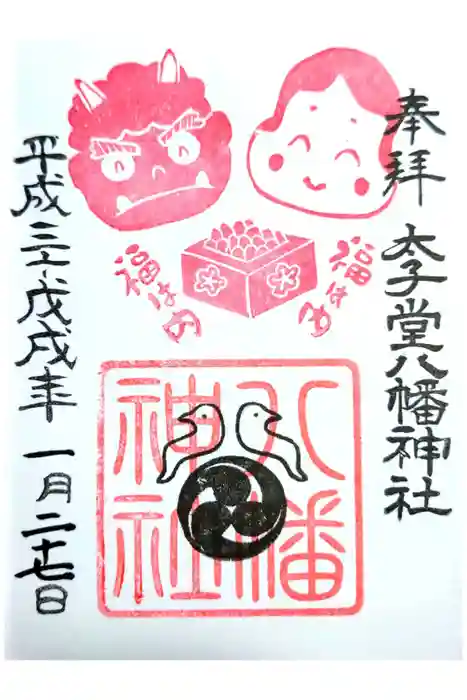 奉拝
太子堂八幡神社
福は
福は
八幡
神社
平成三十戊戌年 一月二十七日